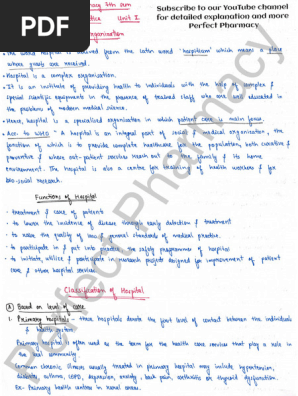 PDF
Subscribe to our YouTube channel
for detailed explanation and more
Perfect Pharmacy.
7th Sem
Unit I
Organization
• The word hospital is derived from the latin word "hospitium" which means a place
where guests are received.
• Hospital is a complex organisation.
• It is an institute of providing health to individuals with the help of complex &
special scientific equipments in the presence of trained staff who are well educated in
the problems of modern medical science.
• Hence, hospital is a specialised organisation in which patient care is main focus.
• Acc to WHO "A hospital is an integral part of social & medical organisation, the
function of which is to provide complete healthcare for the population, both curative &
preventive & where out-patient services reach out to the family & its home
environment. The hospital is also a centre for teaching of health workers & for
bio-social research.
Functions of Hospital
• treatment & care of patients
• to lower the incidence of disease through early detection & treatment
• to raise the quality of care & general standards of medical practice.
• to participate in & put into practice the safety programmes of hospital
• to initiate, utilize & participate in research project designed for improvement of patient
care & other hospital services.
Classification of Hospital
(A) Based on level of care
1. Primary hospitals - these hospitals denote the first level of contact between the individuals
& health system
Primary hospital is often used as the term for the health care services that play a role in
the local community.
Common chronic illness usually treated in primary hospital may include hypertension,
diabetes, asthma, COPD, depression, anxiety, back pain, arthritis or thyroid dysfunction.
Ex- Primary health centres in rural areas.
Perfect Pharmacy